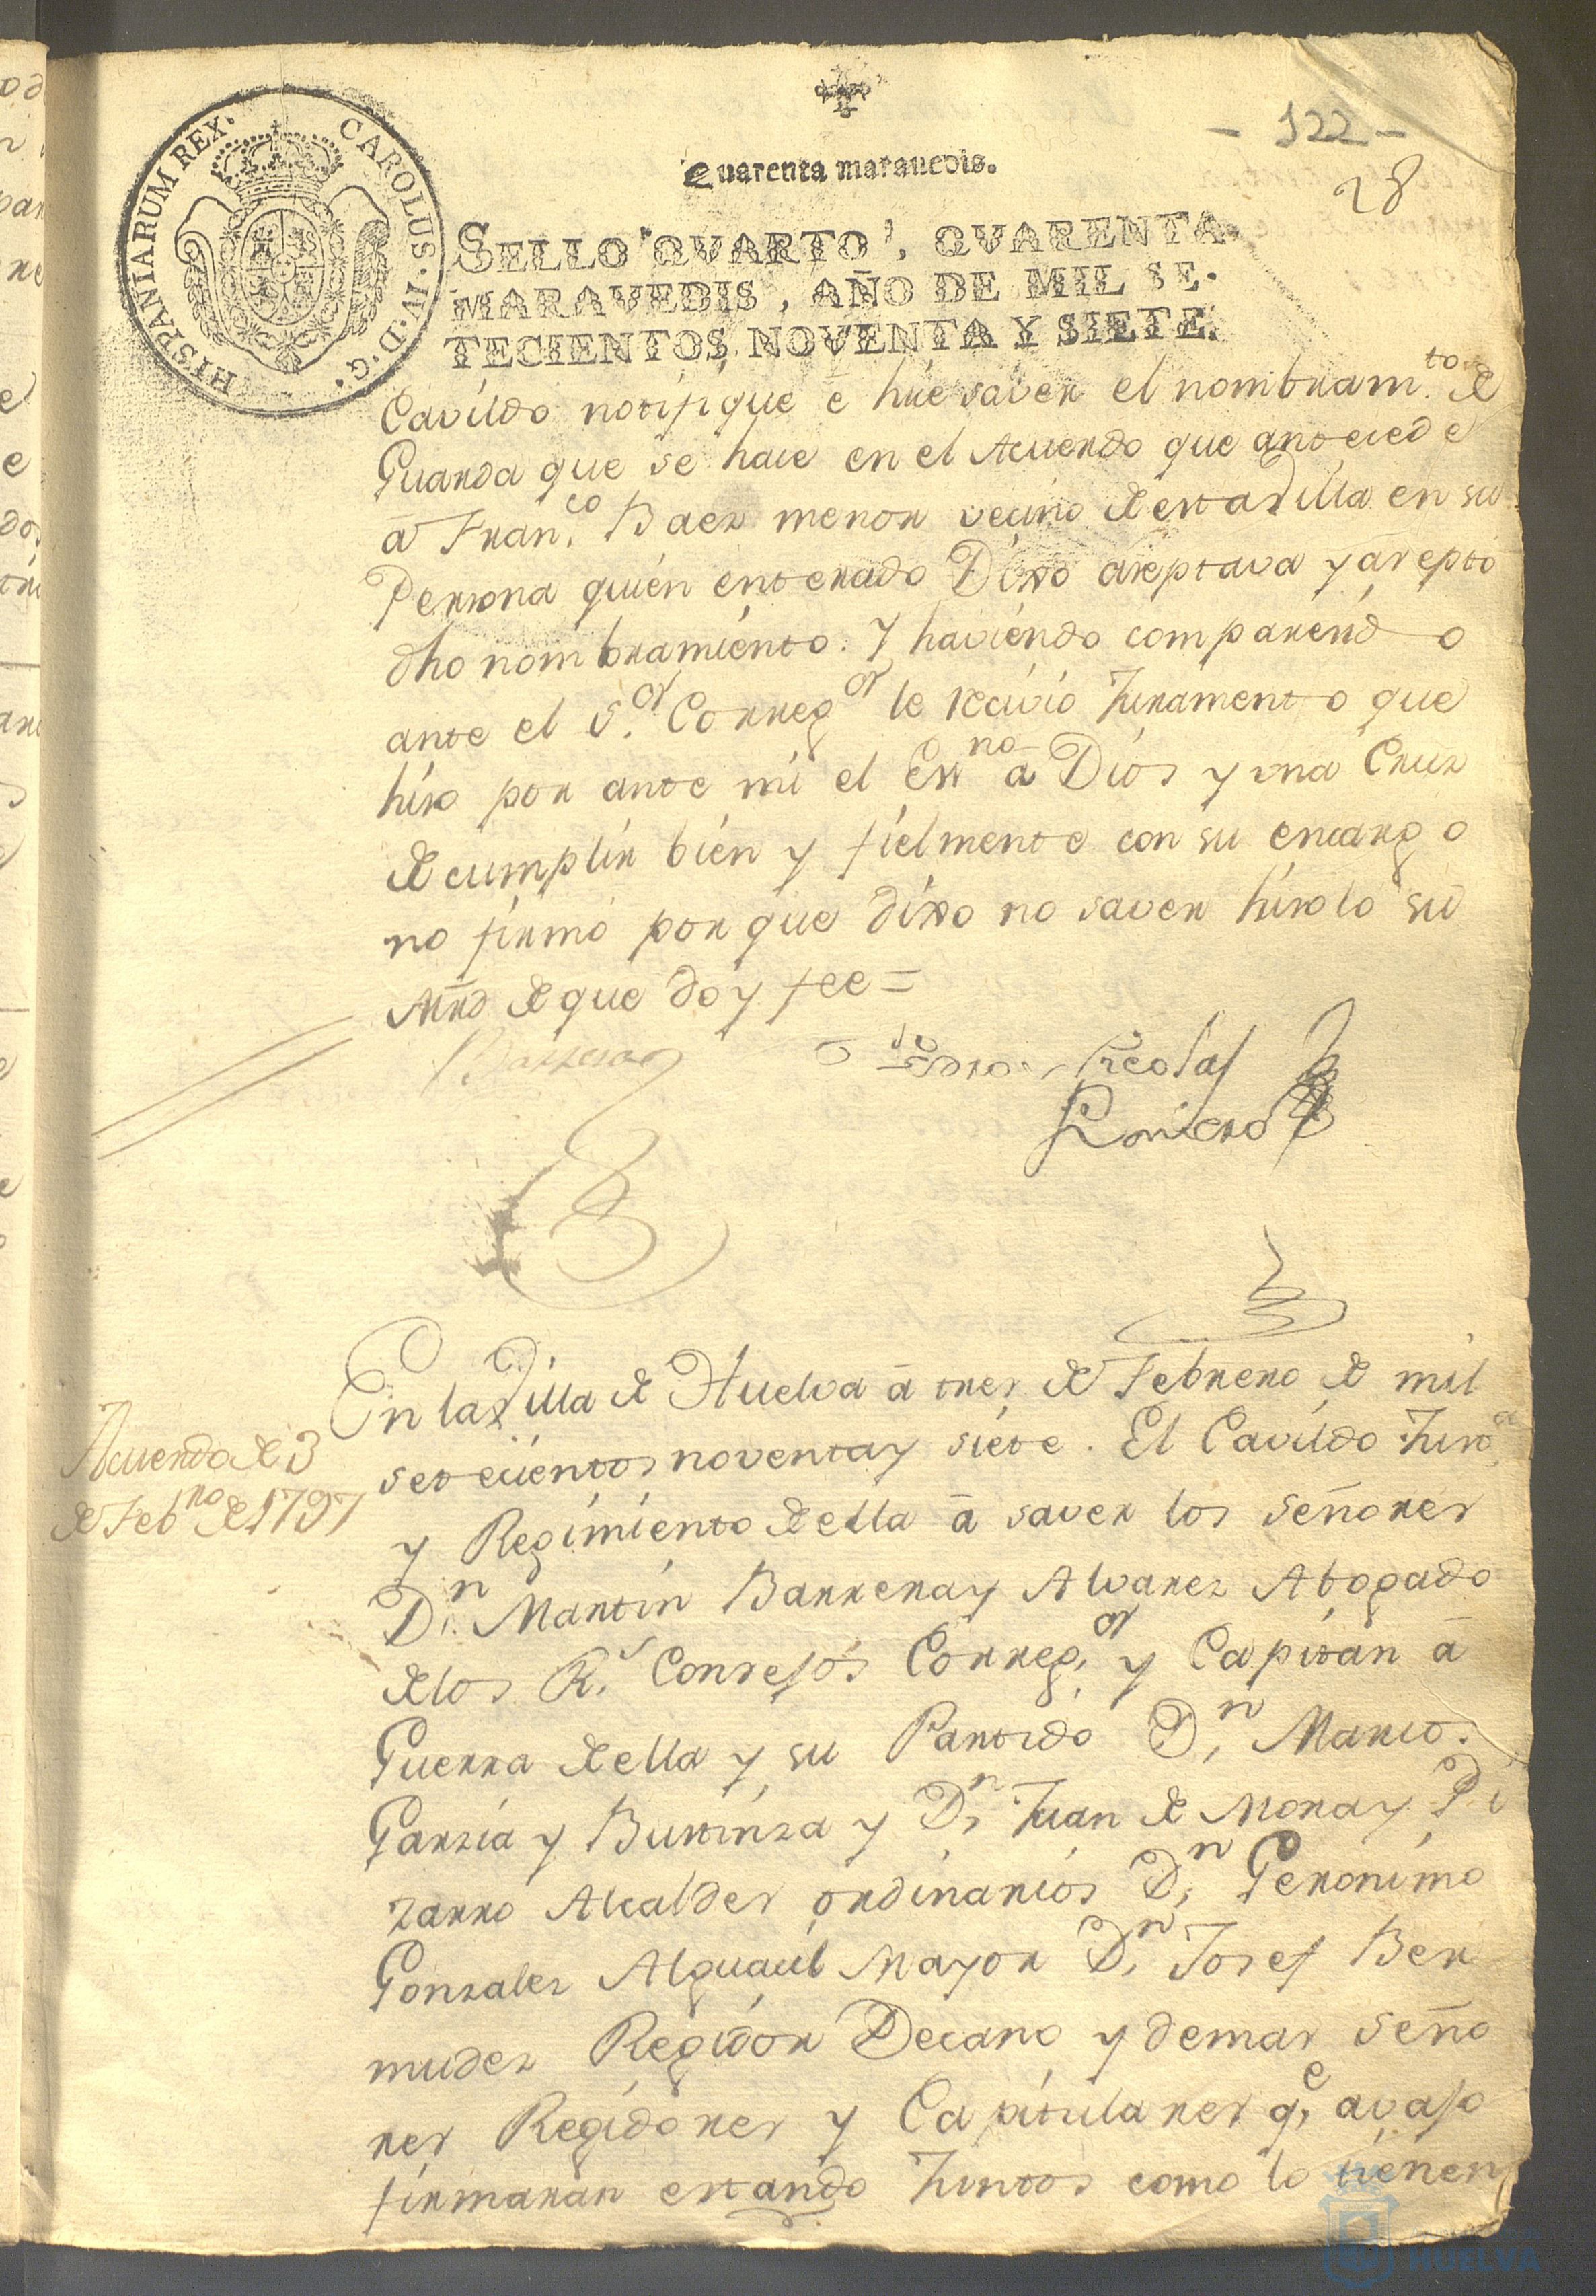 - 122 -
28
Quarenta maravedis.
HISPANIARUM REX. CAROLUS. IV. D. G.
SELLO QVARTO, QVARENTA
MARAVEDIS, AÑO DE MIL SE-
TECIENTOS NOVENTA Y SIETE.
Cavildo notifique è hice saver el nombramto. de
Guarda que se hace en el Acuerdo que antecede
â Franco. Baez menor vecino de esta Villa en su
Persona quien enterado Dixo azeptava y azepto
dho nombramiento. Y haviendo comparecido
ante el Sor. Corregor le recivio Juramento que
hizo por ante mi el Essno â Dios y una Cruz
de cumplir bien y fielmente con su encargo
no firmó porque dixo no saver hizolo su
Mrd de que doy fee =
Barrera
Pedro Nicolas
Romero
Acuerdo de 3
de Febro de 1797
En la Villa de Huelva â tres de Febrero de mil
setecientos noventa y siete. El Cavildo Justa.
y Regimiento de ella â saver los señores
Dn. Martin Barrera y Alvarez Abogado
de los Rs. Consejos Corregor. y Capitan â
Guerra de ella y su Partido Dn. Marco.
Garzia y Bustinza y Dn. Juan de Mora y Pi
zarro Alcaldes ordinarios Dn. Geronimo
Gonzalez Alguacil Mayor Dn. Josef Ber
mudez Regidor Decano y demas seño
res Regidores y Capitulares qe. avajo
firmaran estando Juntos como lo tienen
HUELVA